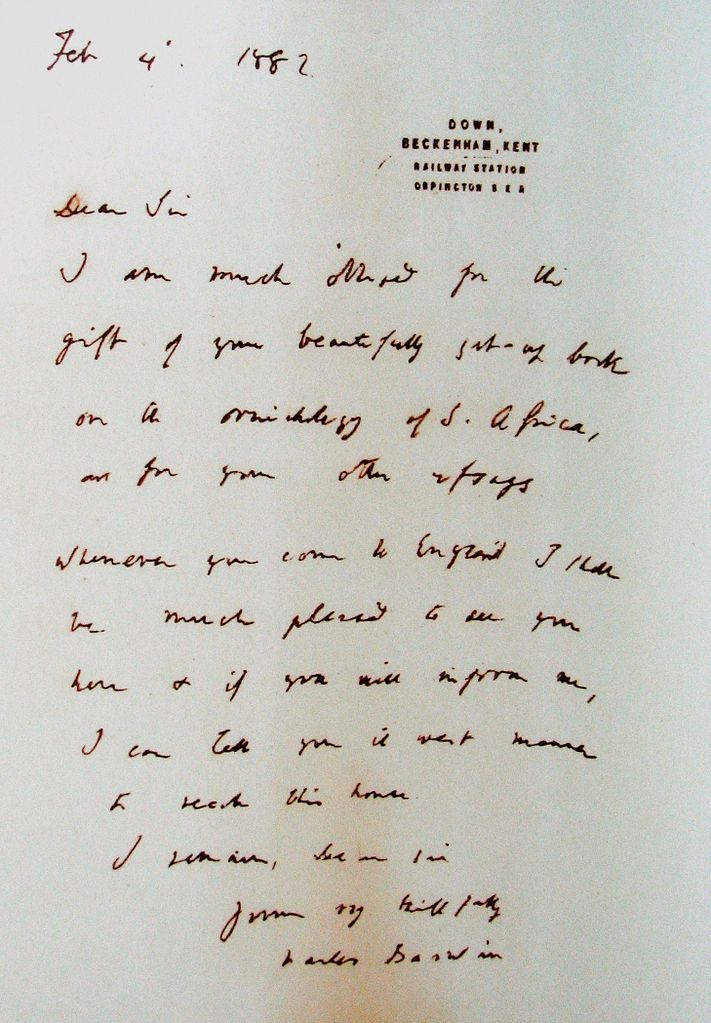 Feb 4. 1882
DOWN,
BECKENHAM, KENT
RAILWAY STATION
ORPINGTON S E R
Dear Sir
I am much obliged for the
gift of your beautifully got-up book
on the ornithology of S. Africa,
for your other essays
Whenever you come to England I shall
be much pleased to see you
here & if you will inform me,
I can tell you manner
to reach this house.
I remain, Dear Sir
Yours faithfully
Charles Darwin